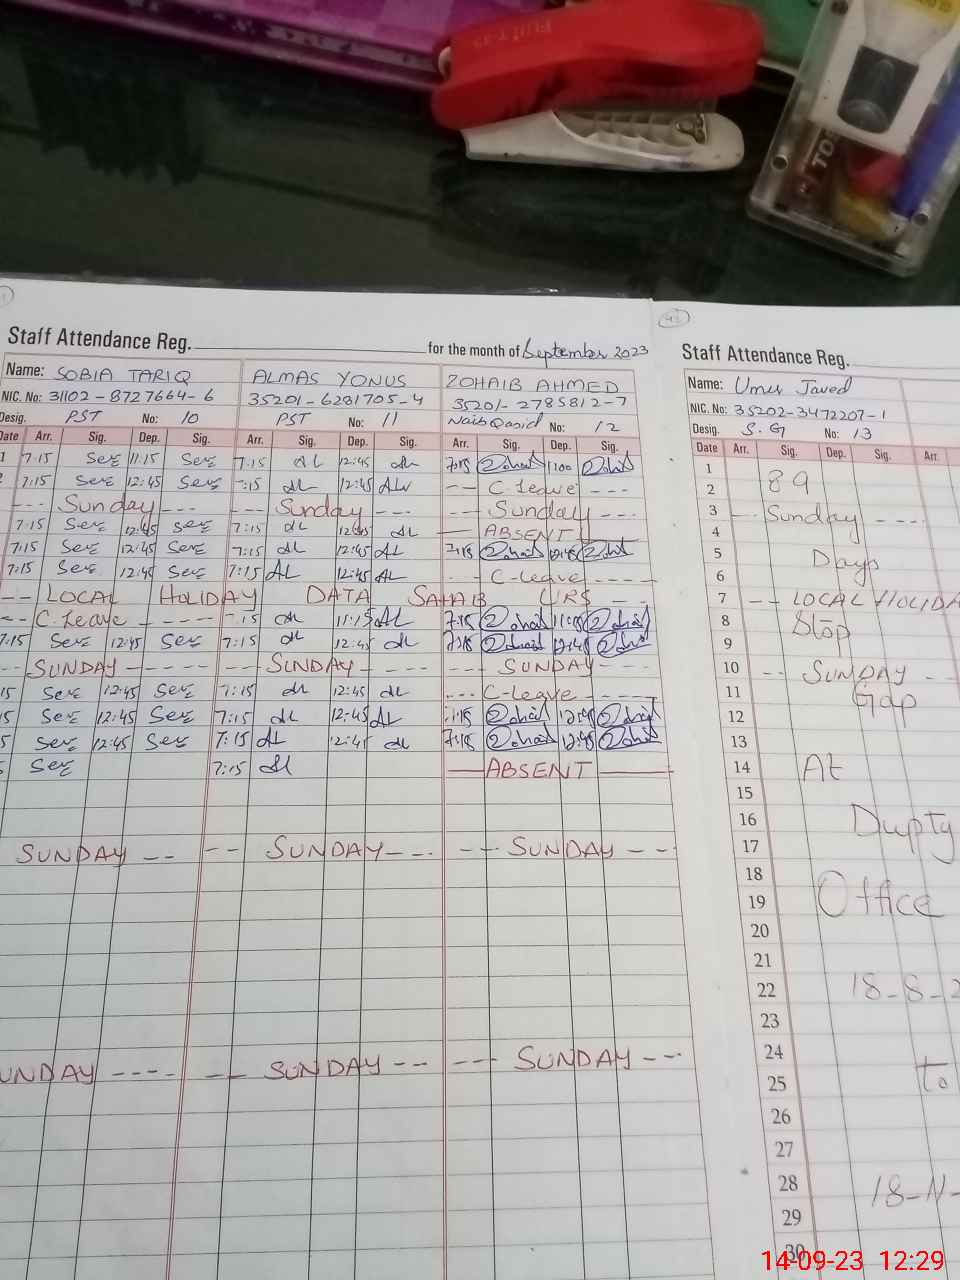 Staff Attendance Reg. for the month of September 2023
Name: SOBIA TARIQ ALMAS YONUS ZOHAIB AHMED
NIC. No: 31102-8727664-6 35201-6281705-4 35201-2785812-7
Desig. PST No: 10 PST No: 11 Naib Qasid No: 12
Date Arr. Sig. Dep. Sig. Arr. Sig. Dep. Sig. Arr. Sig. Dep. Sig.
1 7:15 11:15 7:15 12:45 7:15 11:00
7:15 12:45 7:15 12:45 -- C.leave ---
--- Sunday --- --- Sunday --- --- Sunday ---
7:15 12:45 7:15 12:45 ABSENT
7:15 12:45 7:15 12:45 7:15 12:45
7:15 12:45 7:15 12:45 C-leave ----
-- LOCAL HOLIDAY DATA SAHAB URS --
C.leave ---- 7:15 11:15 7:15 11:15
7:15 12:45 7:15 12:45 7:15 12:45
-- SUNDAY ----- -- SUNDAY ---- --- SUNDAY ---
15 12:45 7:15 12:45 --- C-leave ----
15 12:45 7:15 12:45 7:15 12:45
5 12:45 7:15 12:45 7:15 12:45
7:15 ABSENT
SUNDAY -- -- SUNDAY --- --- SUNDAY --
UNDAY ---- -- SUNDAY -- --- SUNDAY --
42
Staff Attendance Reg.
Name: Umer Javed
NIC. No: 35202-3472207-1
Desig. S.G No: 13
Date Arr. Sig. Dep. Sig. Arr.
1
2 89
3 -- Sunday ----
4
5 Days
6
7 -- LOCAL HOLIDA
8 Stop
9
10 -- SUNDAY --
11 Gap
12
13
14 At
15
16 Dupty
17
18
19 Office
20
21
22 18-8-2
23
24
25 to
26
27
28 18-11-
29
30
14-09-23 12:29